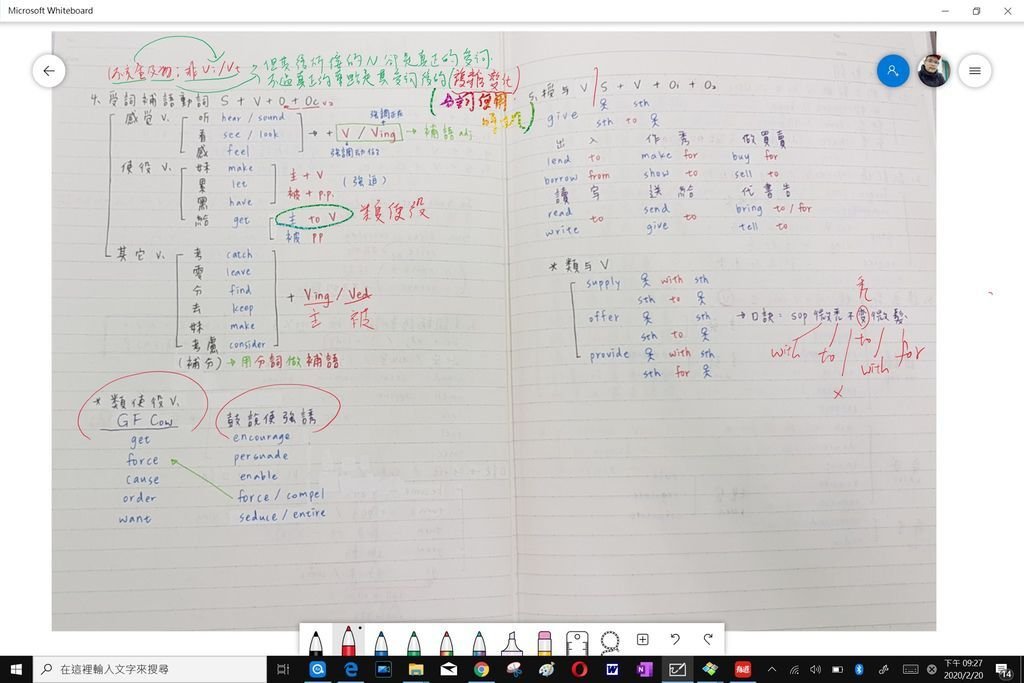 Microsoft Whiteboard
(不完全及物：非Vi/Vt
4. 受詞補語動詞 S + V + O + Oc
感受 V. 听 hear / sound
看 see / look
感 feel
→ + V / Ving → 補語 adj.
使役 V. 妹 make
累 let
黑 have
給 get
主 + V (強迫)
被 + p.p.
主 to V 類使役
被 pp
其它 V. 考 catch
零 leave
分 find
去 keep
妹 make
考慮 consider
+ Ving / Ved
主 被
(補分) → 用分詞做補語
* 類使役 V.
GF Cow
get
force
cause
order
want
鼓說使強誘
encourage
persuade
enable
force / compel
seduce / entire
5. 授与 V S + V + O₁ + O₂
give 人 sth
sth to 人
出 入 作秀 做買賣
lend to make for buy for
borrow from show to sell to
讀 寫 送給 代書告
read to send to bring to / for
write give tell to
* 類与 V
supply 人 with sth
sth to 人
offer 人 sth
sth to 人
provide 人 with sth
sth for 人
with to / to with for
x
在這裡輸入文字來搜尋
下午 09:27
2020/2/20
14